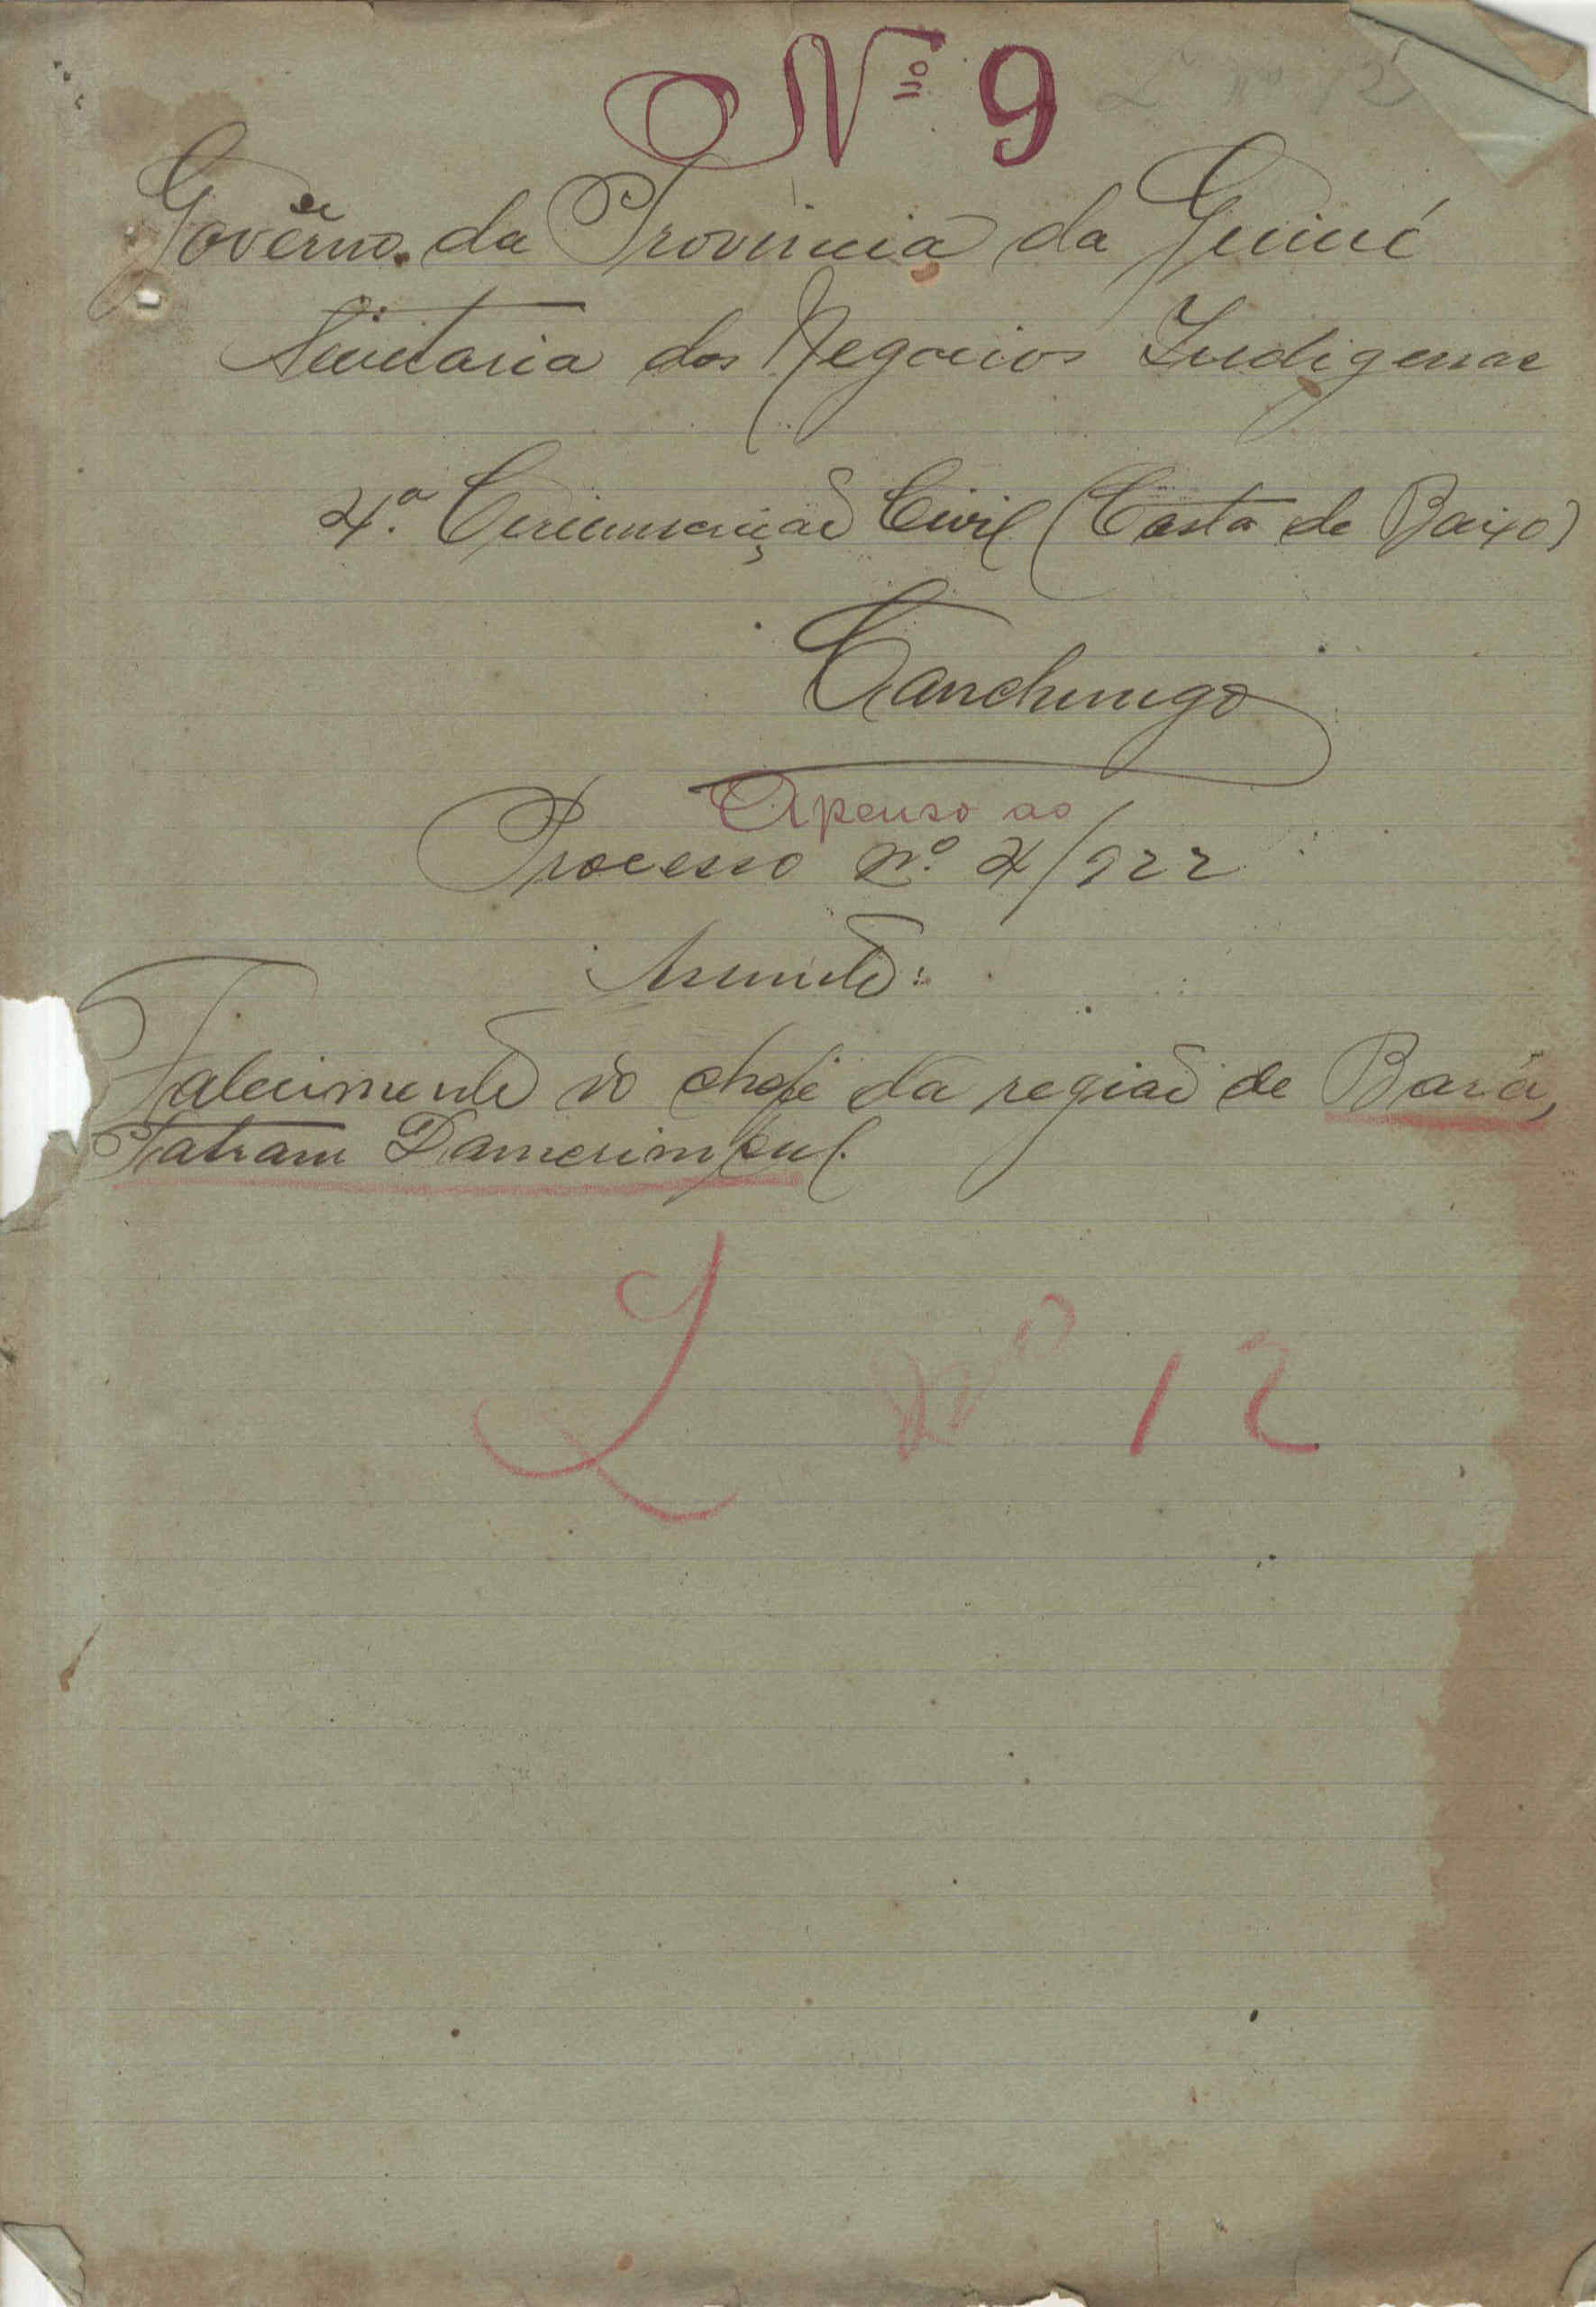 Nº 9 L nº 12
Govêrno da Provincia da Guiné
Secretaria dos Negocios Indigenas
4.ª Circunscrição Civil (Costa de Baixo)
Canchungo
Apenso ao
Processo nº. 4/922
Assunto:
Falecimento do chefe da região de Bará,
Tatram
L nº 12